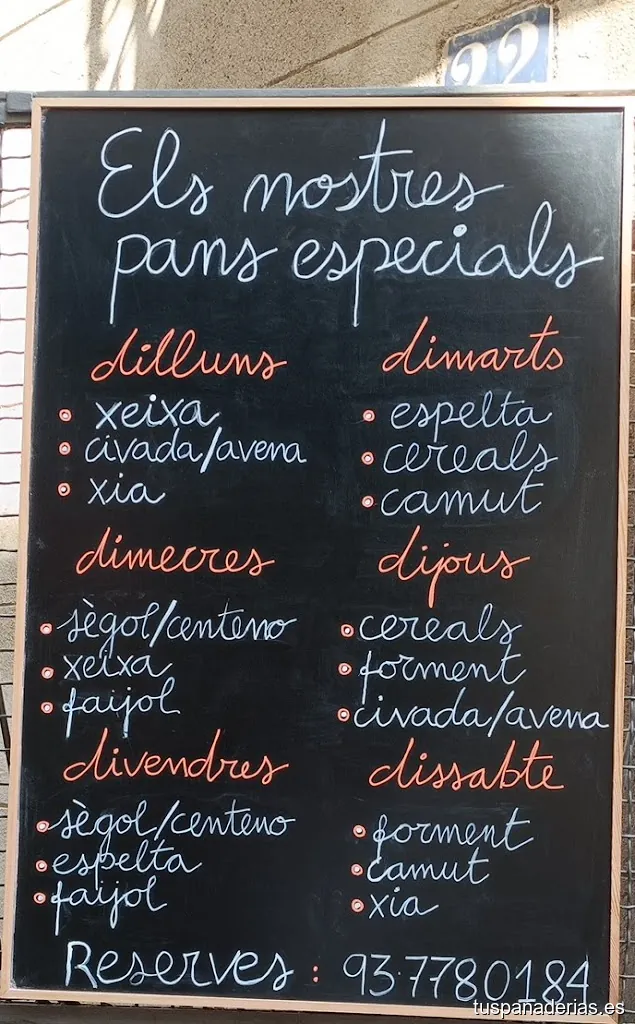 22
Els nostres
pans especials
dilluns
xeixa
civada/avena
xia
dimarts
espelta
cereals
camut
dimecres
sègol/centeno
xeixa
fajol
dijous
cereals
forment
civada/avena
divendres
sègol/centeno
espelta
fajol
dissabte
forment
camut
xia
Reserves: 93.7780184
tuspanaderias.es